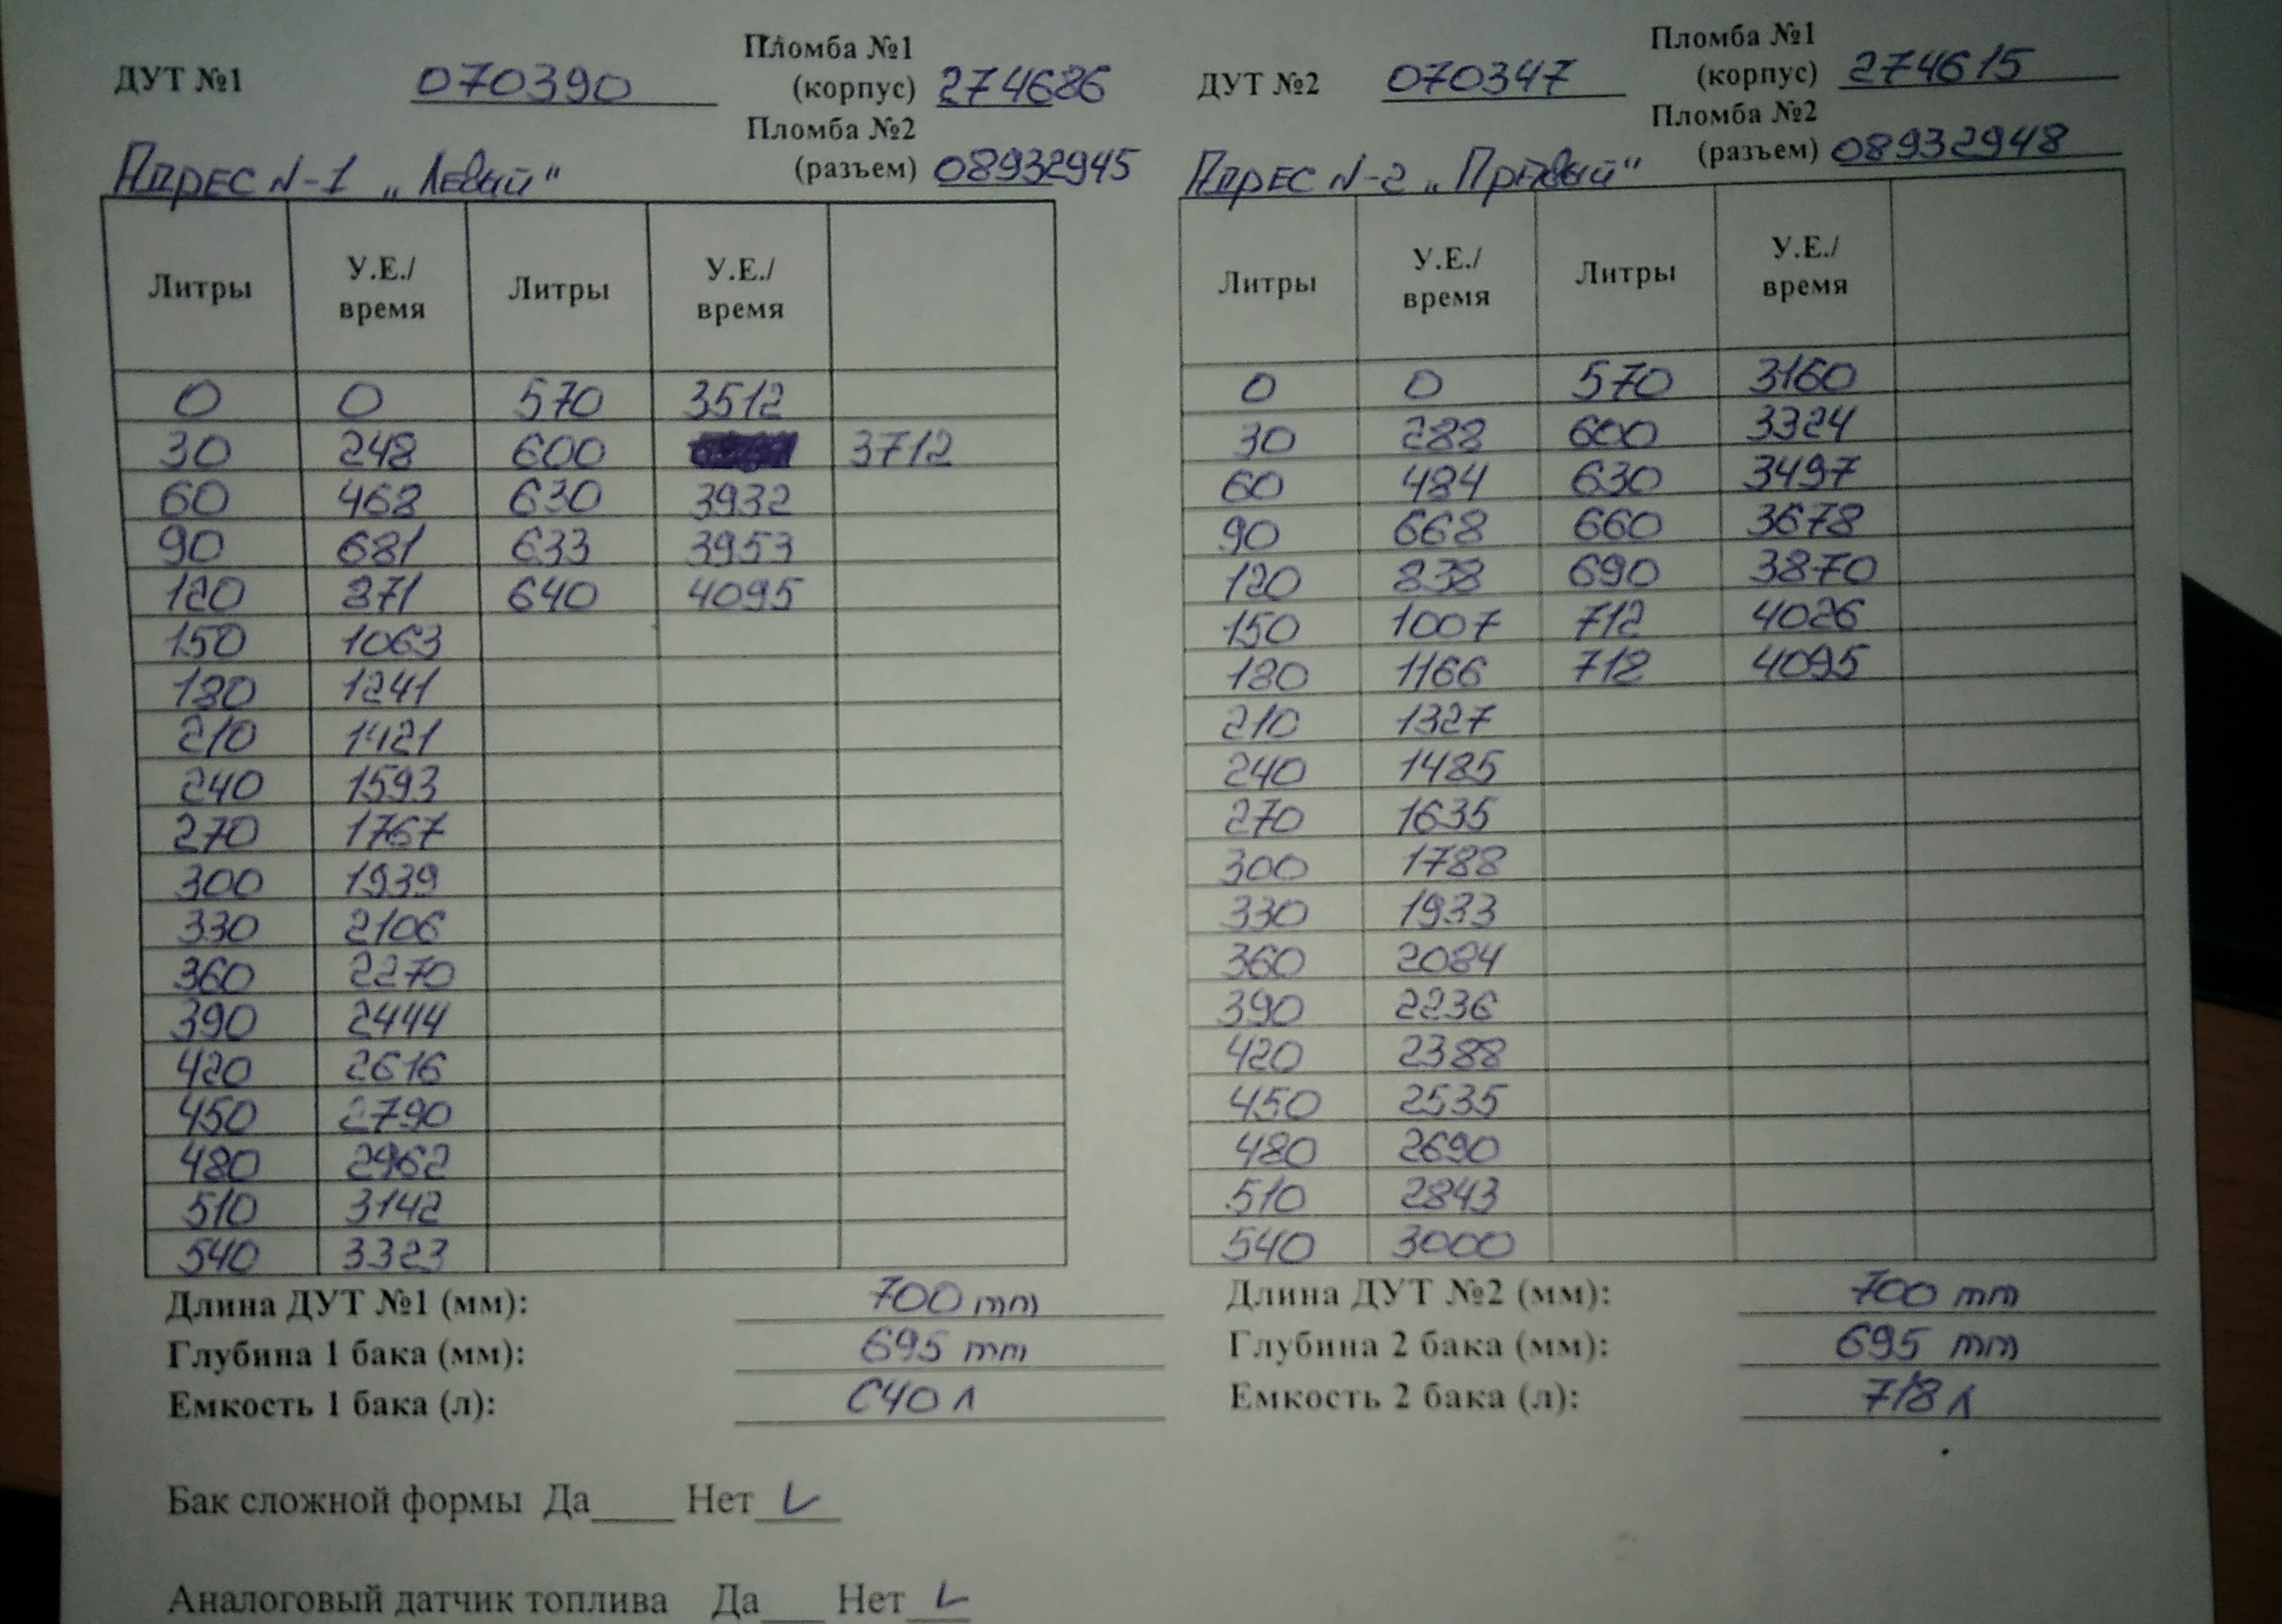 ДУТ №1 070390 Пломба №1 (корпус) 274686
Пломба №2 (разъем) 08932945
Адрес N-1 „Левый“
Литры У.Е./время Литры У.Е./время
0 0 570 3512
30 248 600 3712
60 468 630 3932
90 681 633 3953
120 871 640 4095
150 1063
180 1241
210 1421
240 1593
270 1767
300 1939
330 2106
360 2270
390 2444
420 2616
450 2790
480 2962
510 3142
540 3323
Длина ДУТ №1 (мм): 700 mm
Глубина 1 бака (мм): 695 mm
Емкость 1 бака (л): 640 л
ДУТ №2 070347 Пломба №1 (корпус) 274615
Пломба №2 (разъем) 08932948
Адрес N-2 „Правый“
Литры У.Е./время Литры У.Е./время
0 0 570 3160
30 288 600 3324
60 484 630 3497
90 668 660 3678
120 838 690 3870
150 1007 712 4026
180 1166 718 4095
210 1327
240 1485
270 1635
300 1788
330 1933
360 2084
390 2236
420 2388
450 2535
480 2690
510 2843
540 3000
Длина ДУТ №2 (мм): 700 mm
Глубина 2 бака (мм): 695 mm
Емкость 2 бака (л): 718 л
Бак сложной формы Да____ Нет_✓_
Аналоговый датчик топлива Да___ Нет_✓_